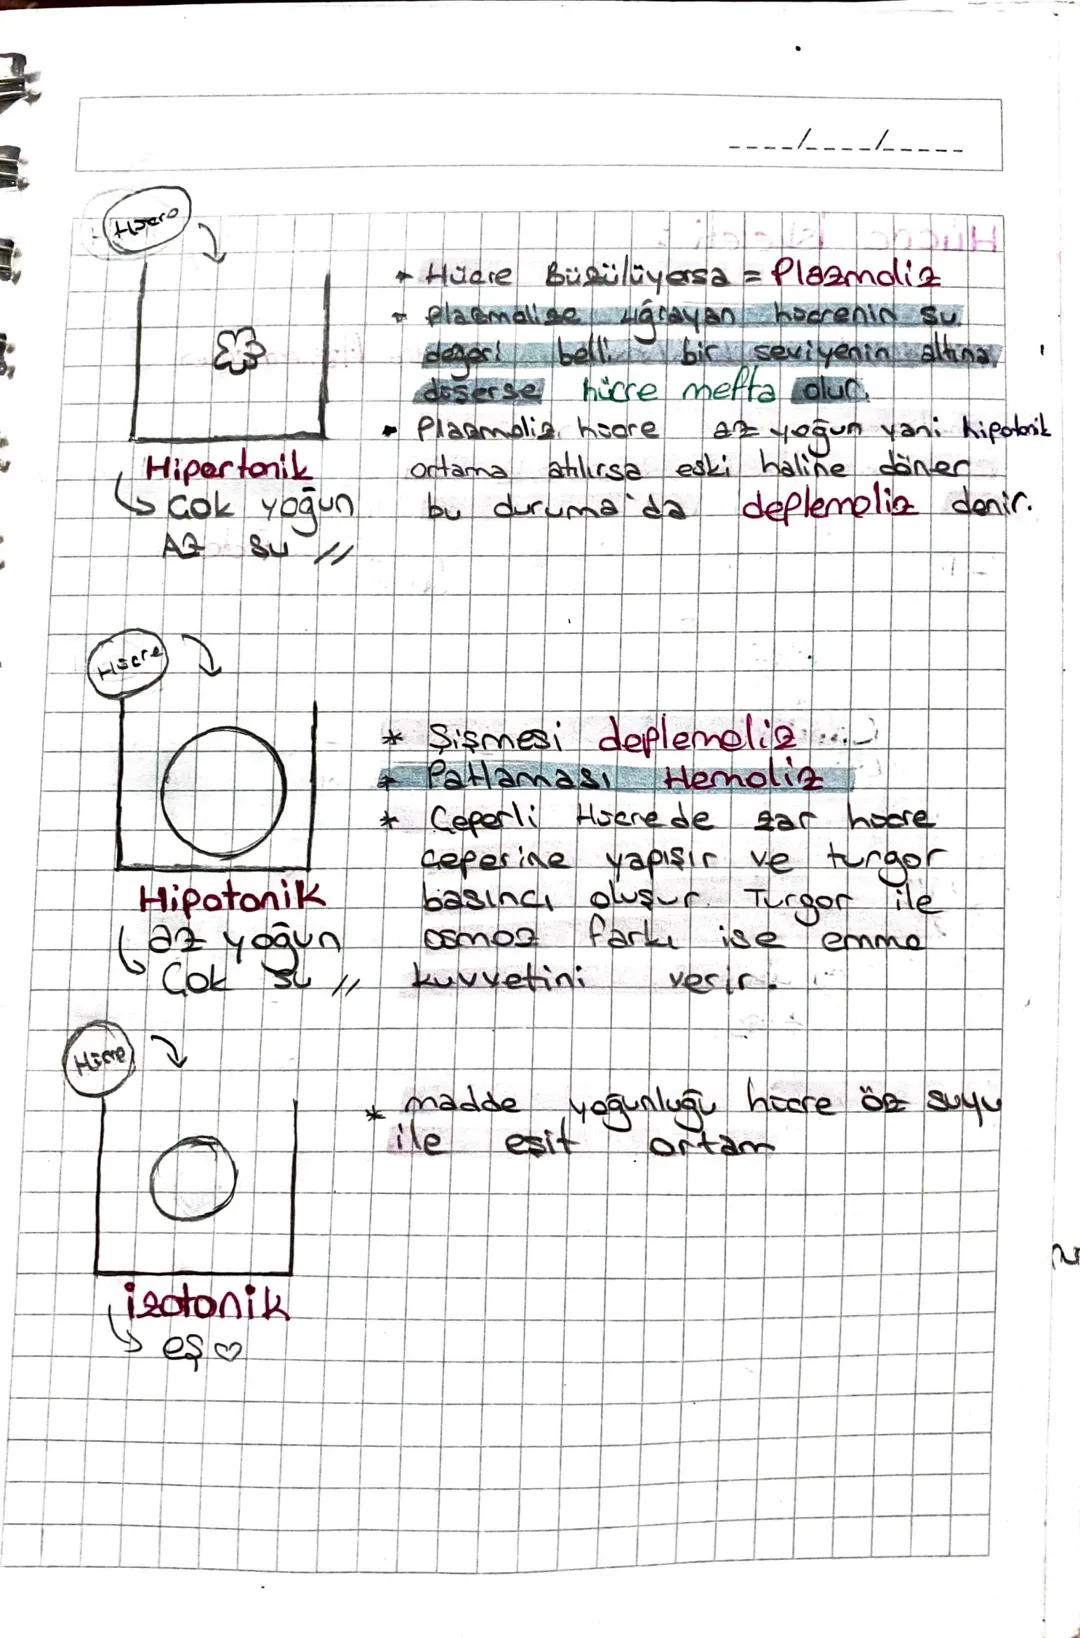 Hücre
* Hücre Büzülüyorsa = Plazmoliz
* Plazmolize uğrayan hücrenin su
değeri belli bir seviyenin altına
düşerse hücre mefta olur.
Plazmoliz hücre az yoğun yani hipotonik
ortama atılırsa eski haline döner
bu duruma'da deplemoliz denir.
Hipertonik
Çok yoğun
Az su //
Hücre
* Şişmesi deplemoliz
* Patlaması Hemoliz
* Çeperli Hücrede zar hücre
çeperine yapışır ve turgor
basıncı oluşur. Turgor ile
osmoz farkı ise emme
kuvvetini verir.
Hipotonik
az yoğun
Çok su //
Hücre
* madde yoğunluğu hücre öz suyu
ile eşit ortam
izotonik
eş ♡